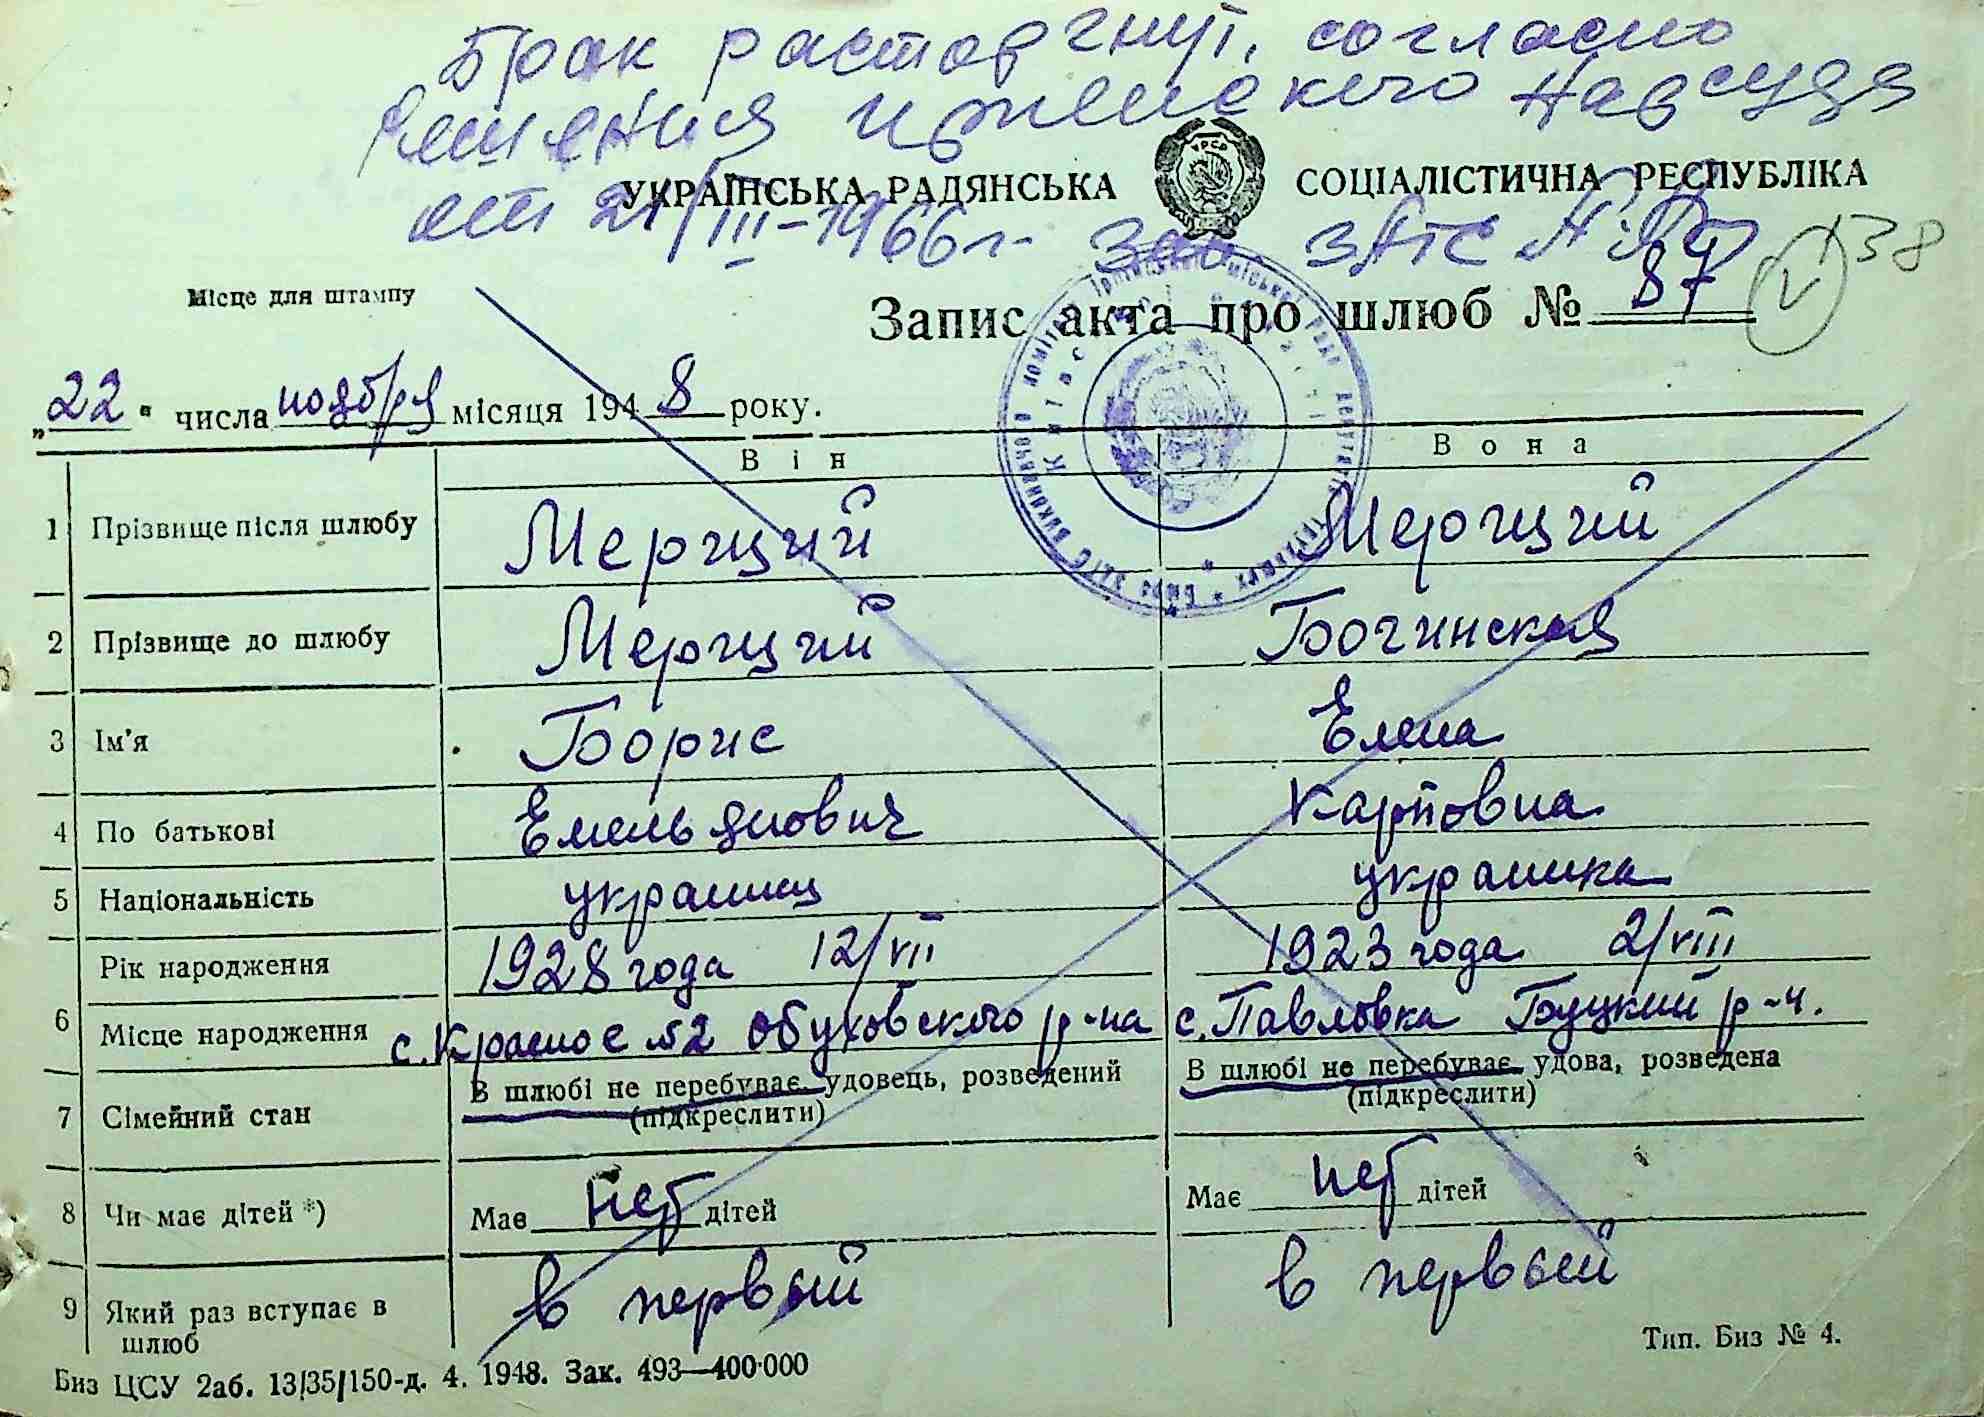 Брак расторгнут, согласно
решения Ирпенского Нарсуда
УКРАЇНСЬКА РАДЯНСЬКА СОЦІАЛІСТИЧНА РЕСПУБЛІКА
УРСР
от 21/III-1966 г. ЗАГС
138
Місце для штампу
Запис акта про шлюб № 87
„22" числа ноября місяця 1948 року.
Він Вона
1 Прізвище після шлюбу Мерщий Мерщий
2 Прізвище до шлюбу Мерщий Богинская
3 Ім'я Борис Елена
4 По батькові Емельянович Карповна
5 Національність украинец украинка
6 Рік народження 1928 года 12/VII 1923 года 2/VIII
Місце народження с. Красное №2 Обуховского р-на с. Павловка Буцкий р-н.
7 Сімейний стан В шлюбі не перебуває, удовець, розведений В шлюбі не перебуває, удова, розведена
(підкреслити) (підкреслити)
8 Чи має дітей *) Має нет дітей Має нет дітей
9 Який раз вступає в в первый в первый
шлюб
Тип. Биз № 4.
Биз ЦСУ 2аб. 13/35/150-д. 4. 1948. Зак. 493—400·000